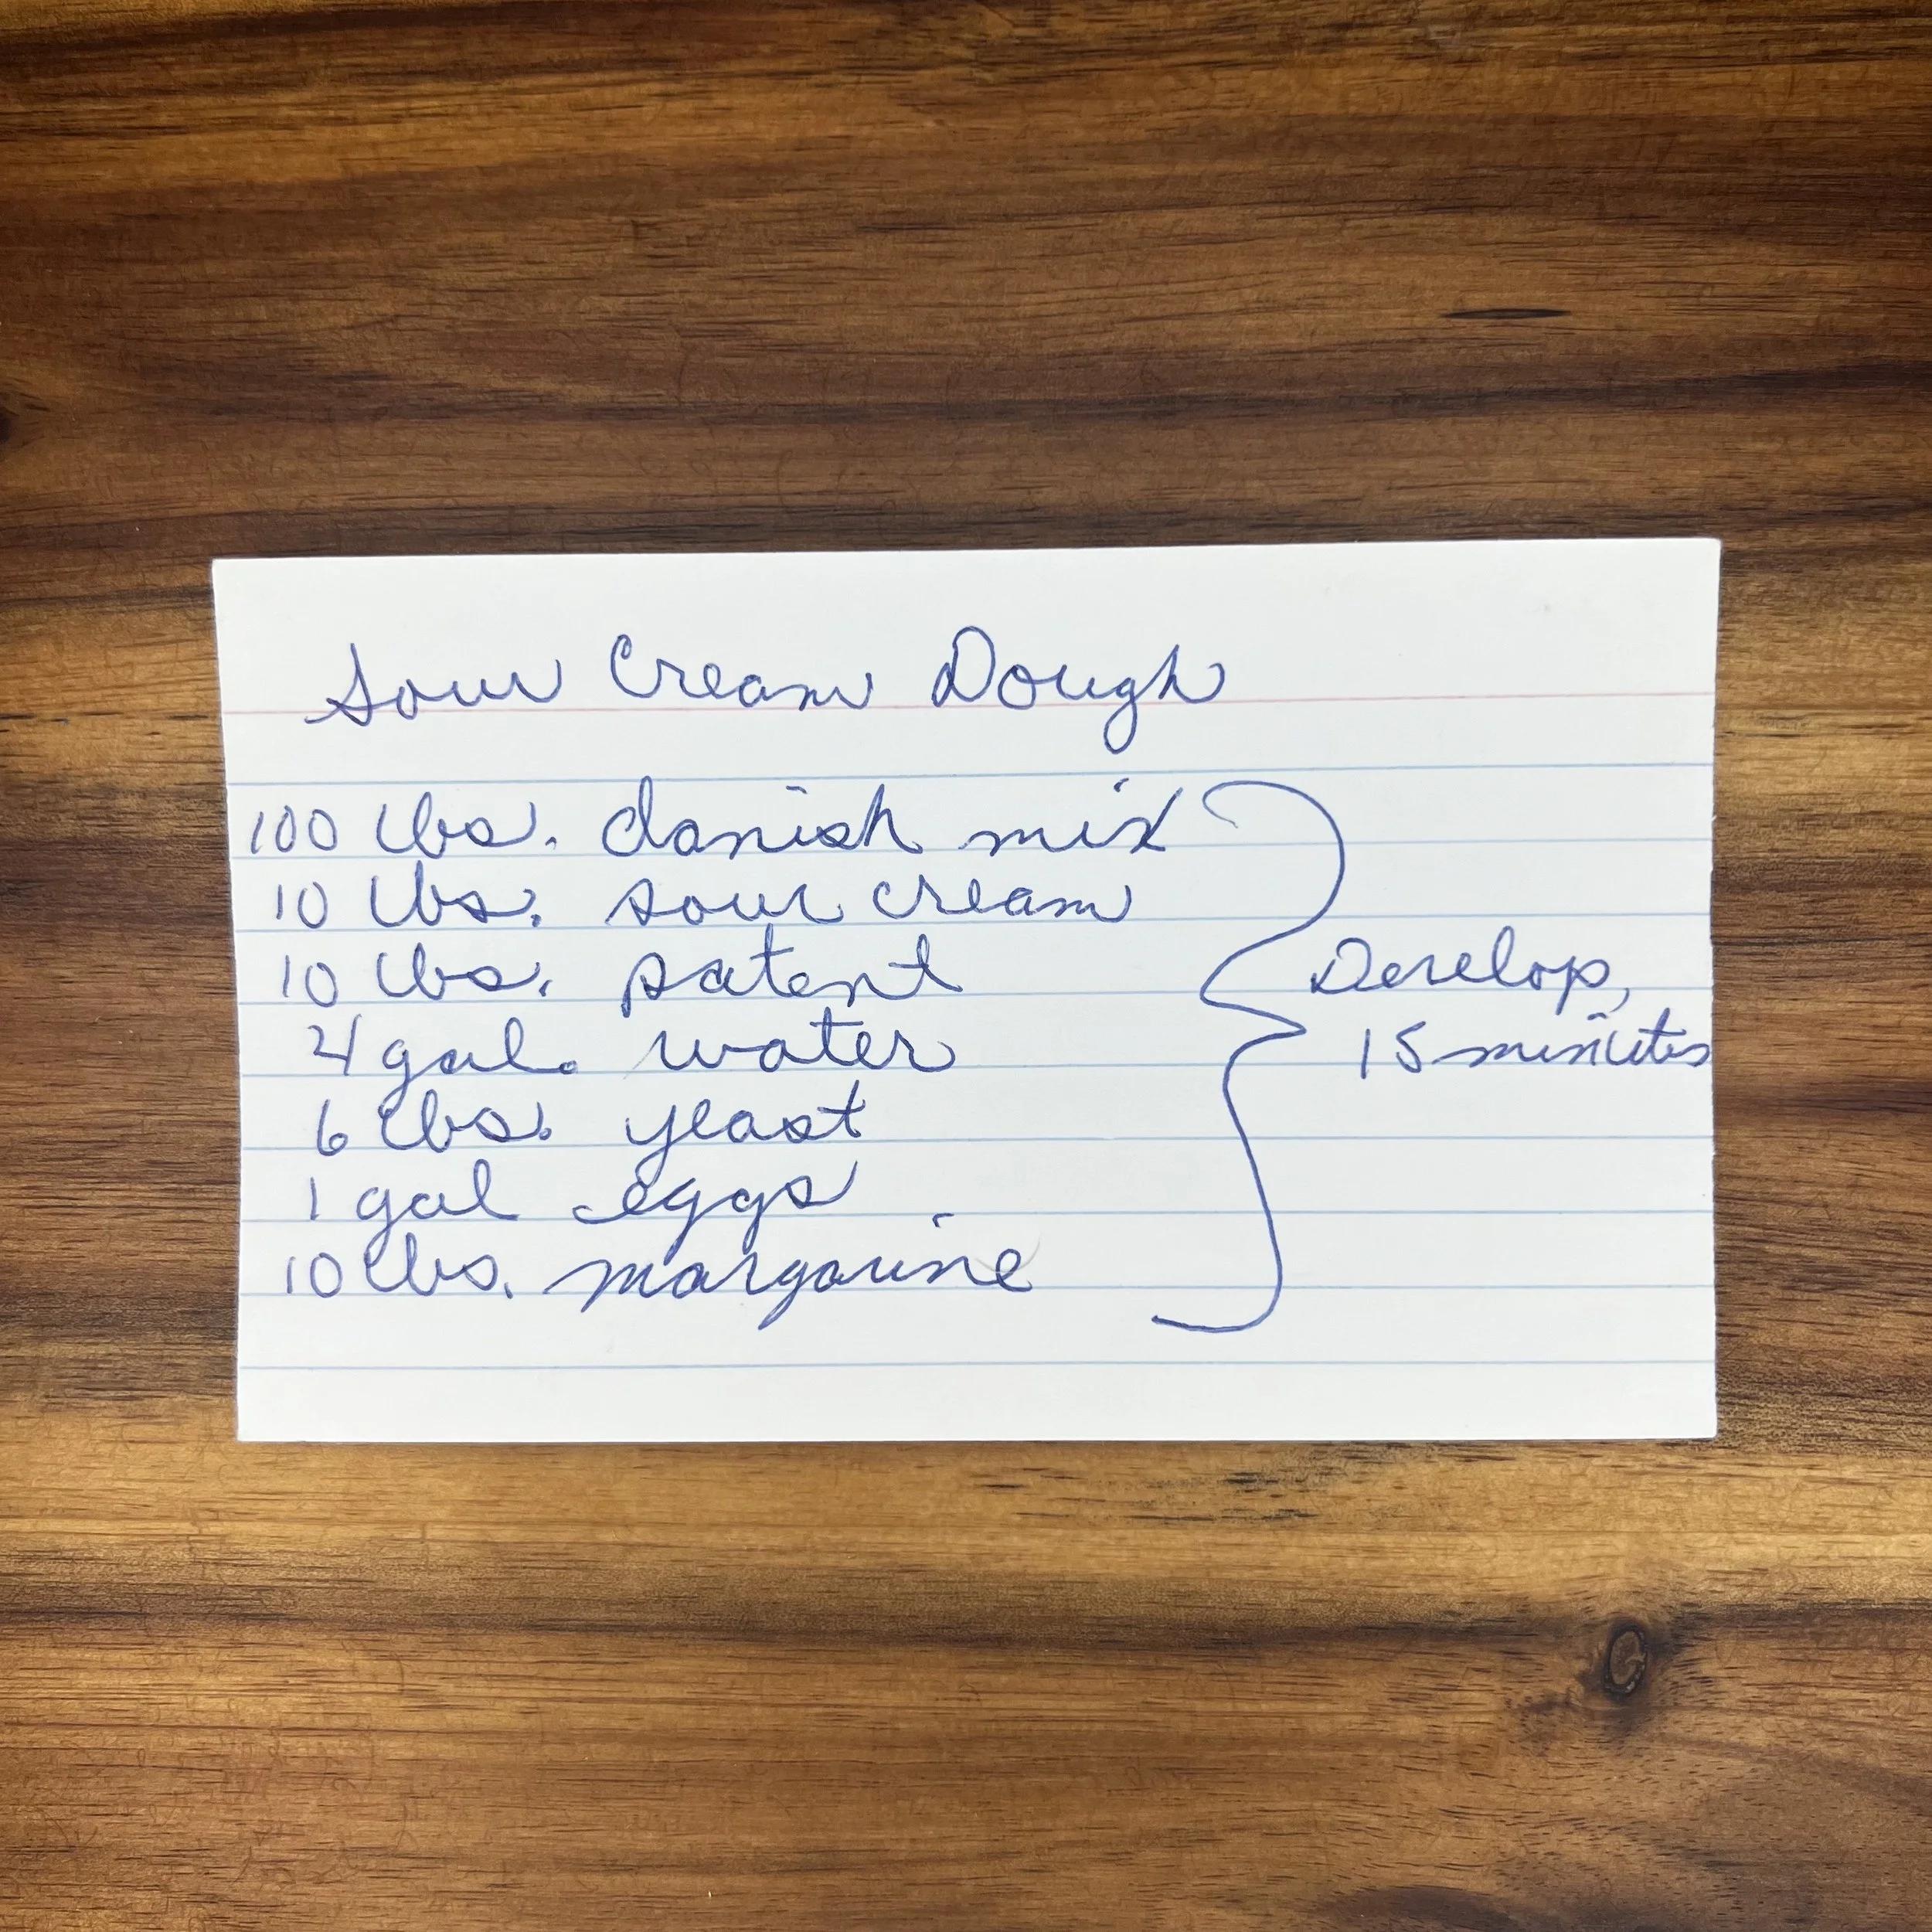 Sour Cream Dough
100 lbs. danish mix
10 lbs. sour cream
10 lbs. patent
4 gal. water
6 lbs. yeast
1 gal eggs
10 lbs. margarine
Develop,
15 minutes